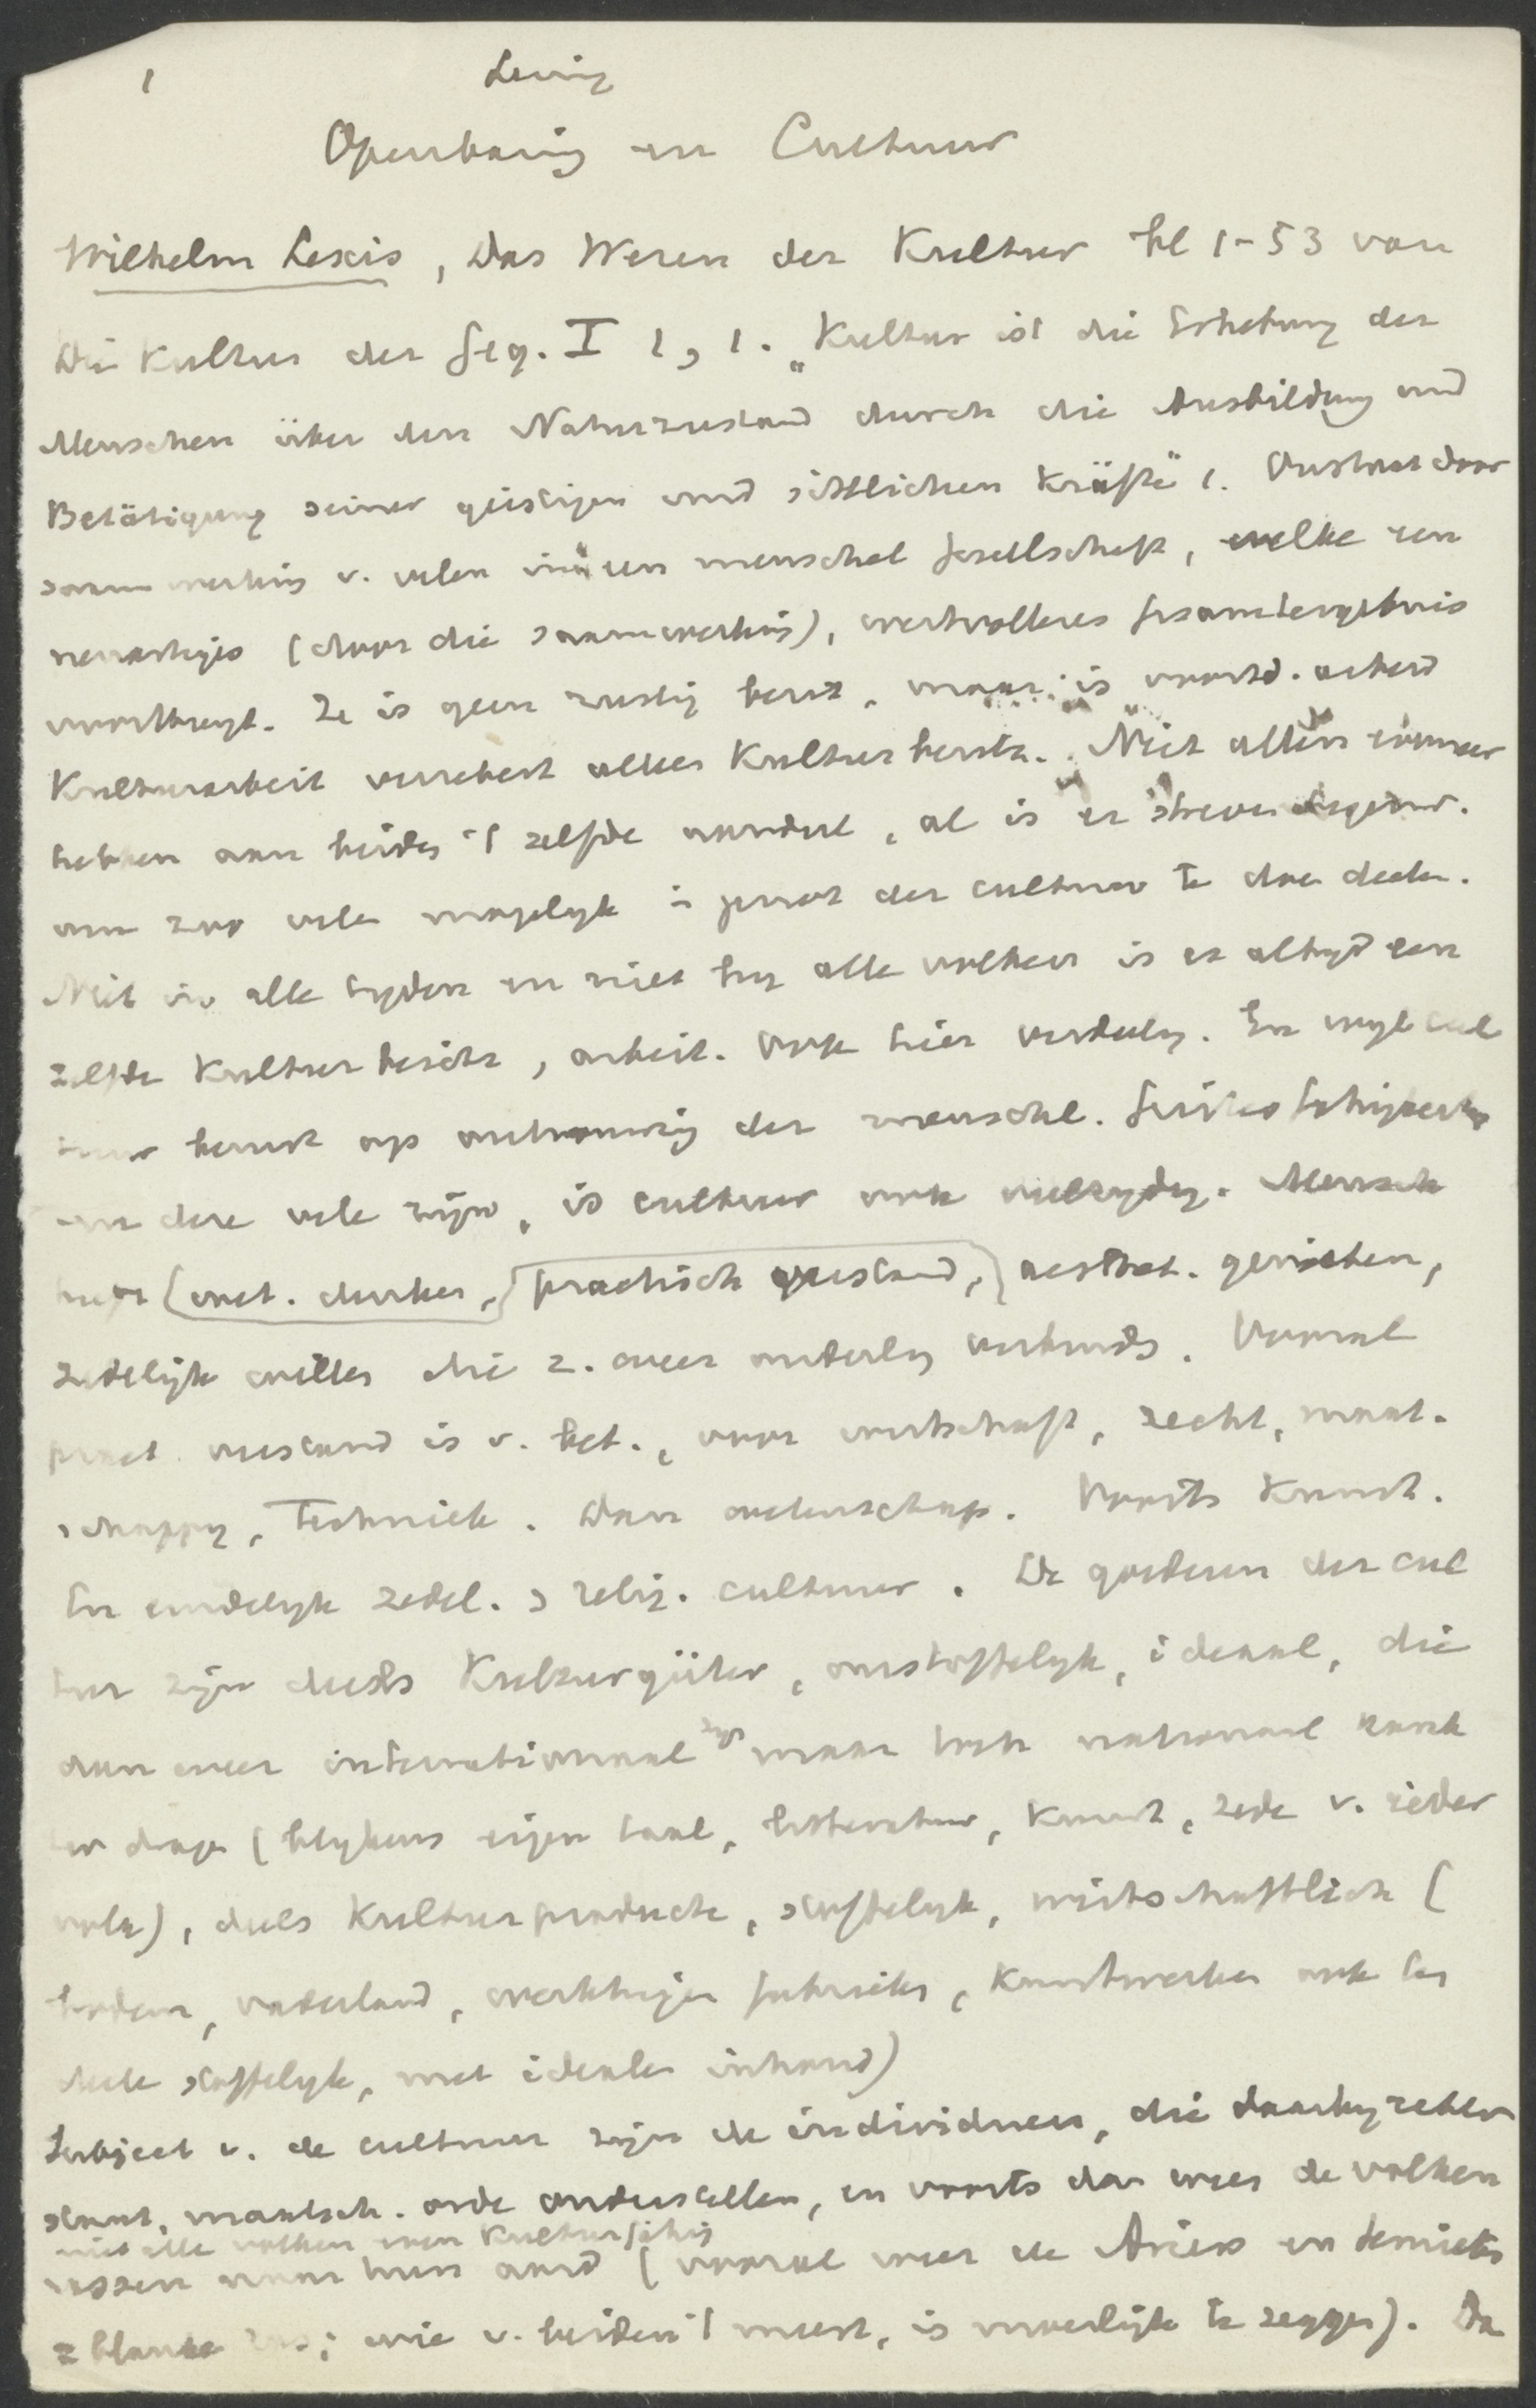 1
Lezing
Openbaring en Cultuur
Wilhelm Lexis, Das Wesen der Kultur bl 1-53 van
Die Kultur der Geg. I 1, 1. „Kultur ist die Erhebung der
Menschen über den Naturzustand durch die Ausbildung und
Betätigung seiner geistigen und sittlichen Kräfte" 1. Ontstaat door
samenwerking v. velen in een menschel Gesellschaft, welke een
neuartiges (door die samenwerking), wertvolleres Gesamtergebnis
voortbrengt. Ze is geen rustig bezit, maar is voortd. arbeid
Kulturarbeit verzekert alleen Kulturbesitz. Niet allen
hebben aan beides 't zelfde aandeel, al is er streven
om zoo velen mogelijk in genot der cultuur te doen deelen.
Niet in alle tijden en niet bij alle volken is er altijd een
zelfde Kulturbesitz, arbeit. Ook hier verdeling. En wijl cul
tuur berust op ontwikkeling der menschel.
en deze vele zijn, is cultuur ook veelzijdig. Mensch
heeft (wet. denken, practisch verstand, aesthet. genieten,
zedelijk willen die z. weer onderling verbinden. Vooral
pract. verstand is v. bet., voor wirtschaft, recht, maat-
schappij, Techniek. Dan wetenschap. Voorts Kunst.
En eindelijk zedel. & relig. cultuur. De goederen der cul
tuur zijn deels Kulturgüter, onstoffelijk, ideaal, die
dan weer internationaal zijn maar toch nationaal karak
ter dragen (blijkens eigen taal, litteratuur, kunst, zede v. ieder
volk), deels Kulturproducte, stoffelijk, wirtschaftlich (
bodem, vaderland, werktuigen fabrieken, kunstwerken ook ten
deele stoffelijk, met idealen inhoud)
Subject v. de cultuur zijn de individuen, die daarbij echter
staat, maatsch. orde onderstellen, en voorts dan weer de volken
niet alle volken even Kulturfähig
rassen naar hun aard (vooral weer de Ariërs en Semieten
= blanke ras; wie v. beiden 't meest, is moeilijk te zeggen). De